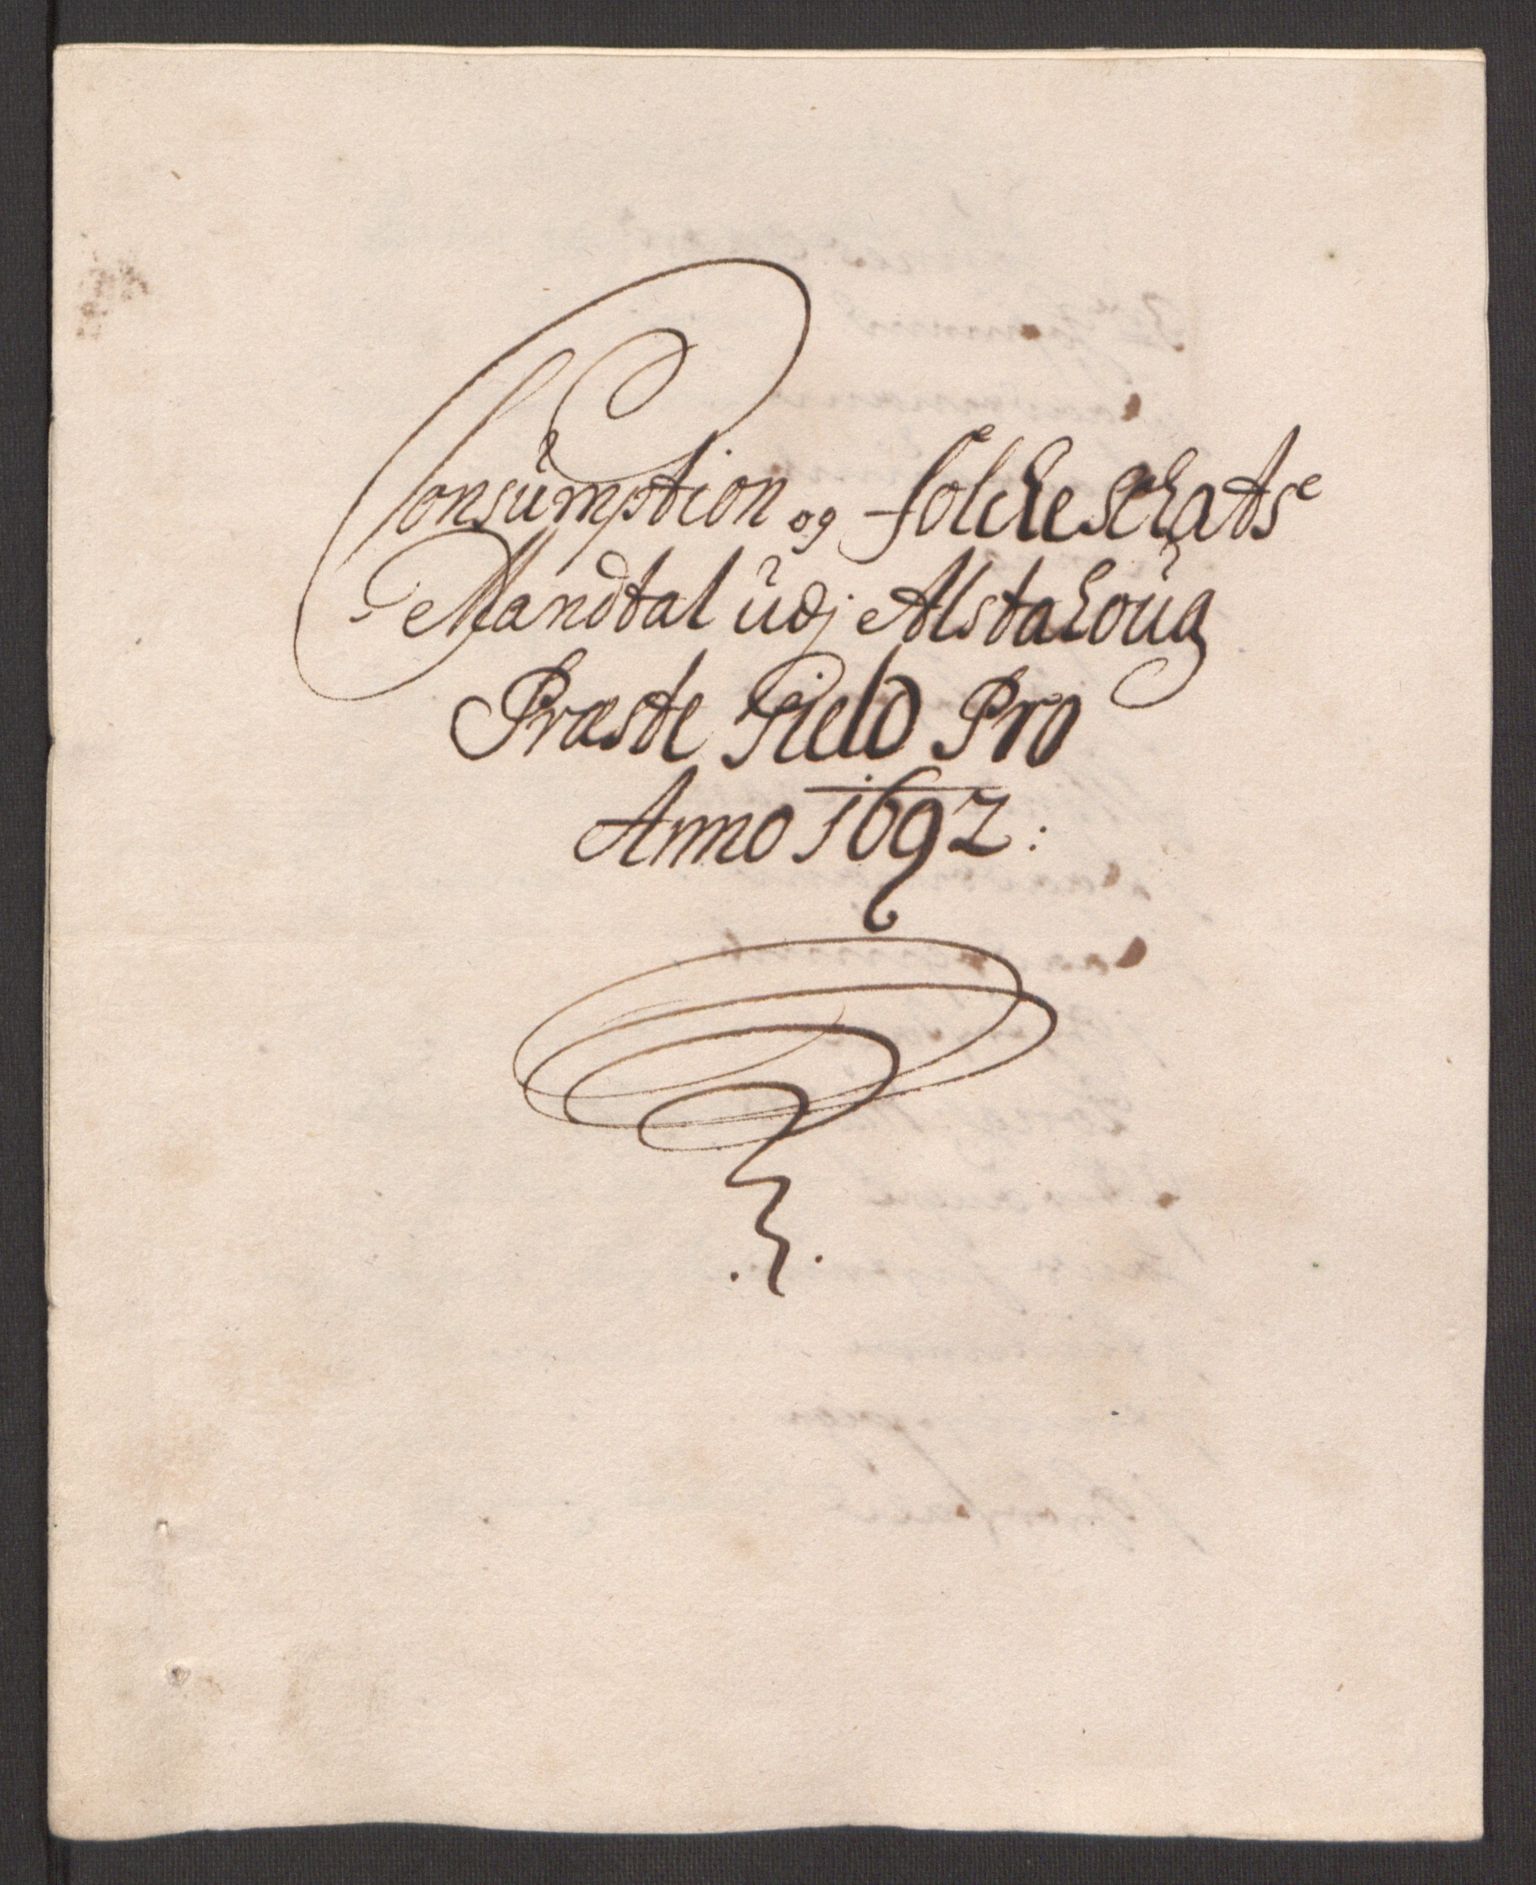 Consumption og folcke schats
Mandtal udj Alstahoug
Præste Gield Pro
Anno 1692: